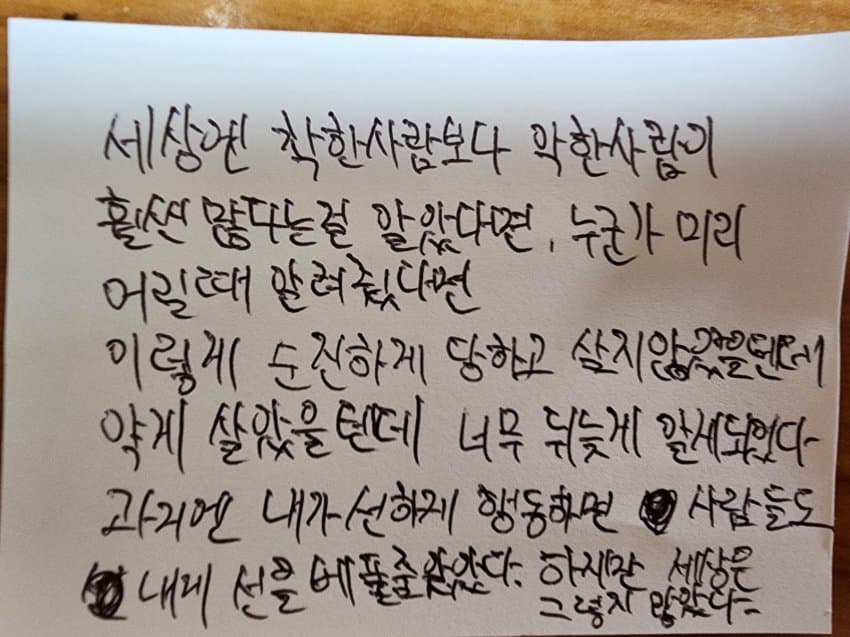 세상엔 착한사람보다 악한사람이
훨씬 많다는걸 알았다면, 누군가 미리
어릴때 알려줬다면
이렇게 순진하게 당하고 살지않았을텐데
약게 살았을텐데 너무 뒤늦게 알게되었다
과거엔 내가선하게 행동하면 사람들도
내게 선을 베풀줄알았다. 하지만 세상은
그렇지 않았다